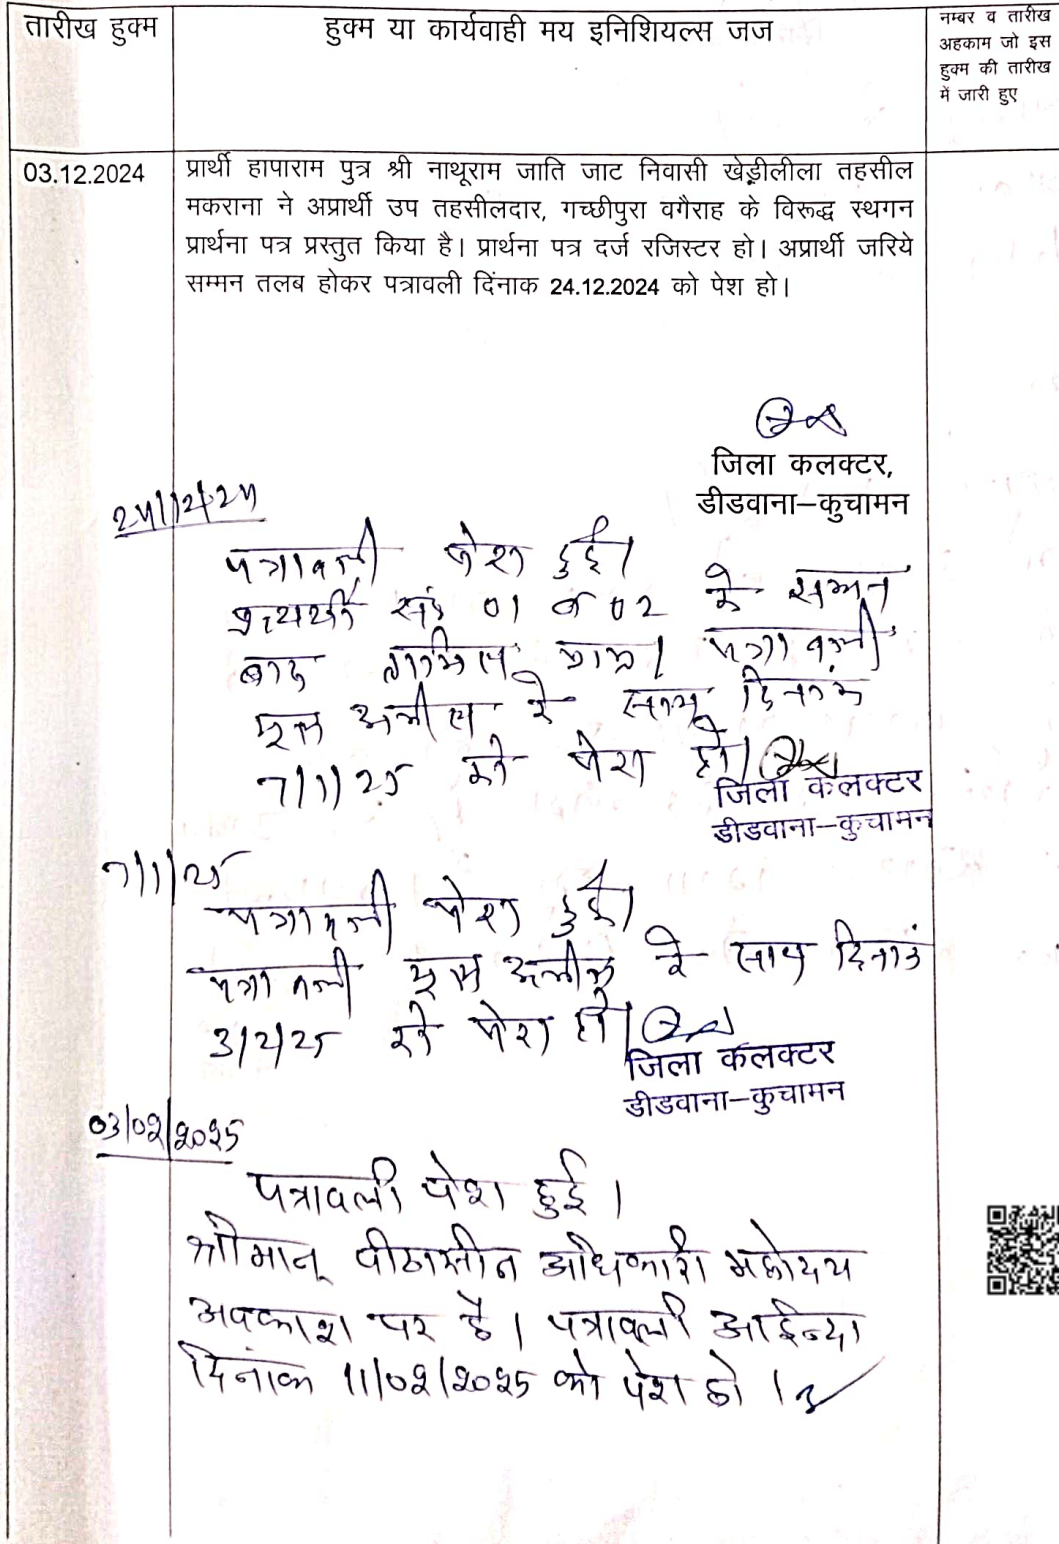 तारीख हुक्म
हुक्म या कार्यवाही मय इनिशियल्स जज
नम्बर व तारीख
अहकाम जो इस
हुक्म की तारीख
में जारी हुए
03.12.2024
प्रार्थी हापाराम पुत्र श्री नाथूराम जाति जाट निवासी खेड़ीलीला तहसील
मकराना ने अप्रार्थी उप तहसीलदार, गच्छीपुरा वगैराह के विरूद्ध स्थगन
प्रार्थना पत्र प्रस्तुत किया है। प्रार्थना पत्र दर्ज रजिस्टर हो। अप्रार्थी जरिये
सम्मन तलब होकर पत्रावली दिंनाक 24.12.2024 को पेश हो।
जिला कलक्टर,
डीडवाना–कुचामन
24/12/24
पत्रावली पेश हुई।
प्रत्यर्थी सं० 01 व 02 के सम्मन
बाद तामिल प्राप्त। पत्रावली
मूल अपील के साथ दिनांक
7/1/25 को पेश हो।
जिला कलक्टर
डीडवाना–कुचामन
7/1/25
पत्रावली पेश हुई।
पत्रावली मूल अपील के साथ दिनांक
3/2/25 को पेश हो।
जिला कलक्टर
डीडवाना–कुचामन
03/02/2025
पत्रावली पेश हुई।
श्रीमान् पीठासीन अधिकारी महोदय
अवकाश पर है। पत्रावली आईन्दा
दिनांक 11/02/2025 को पेश हो।